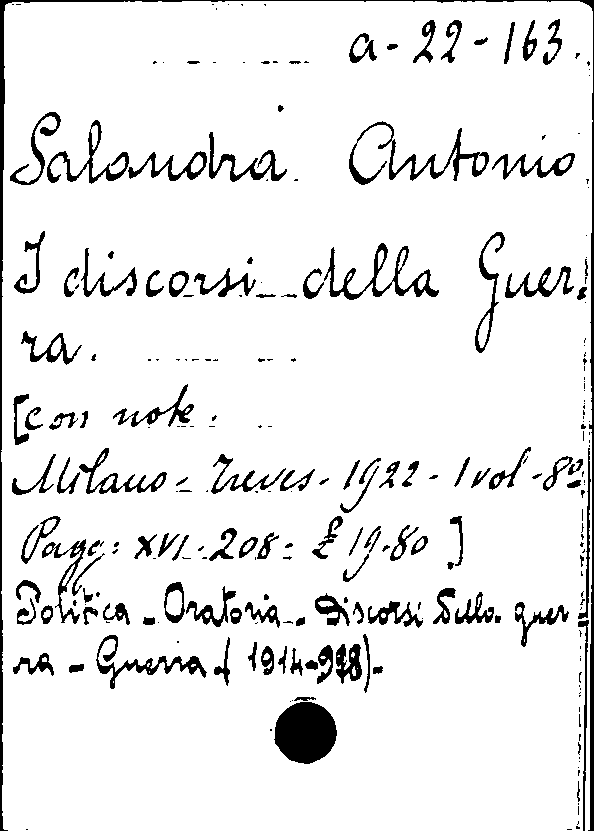 a-22-163.
Salandra Antonio
I discorsi della Guer=
ra.
[con note.
Milano - Treves - 1922 - 1 vol - 8º
Pagg: XVI - 208 = £ 19.80 ]
Politica - Oratoria - Discorsi della guer=
ra - Guerra ( 1914-918) -